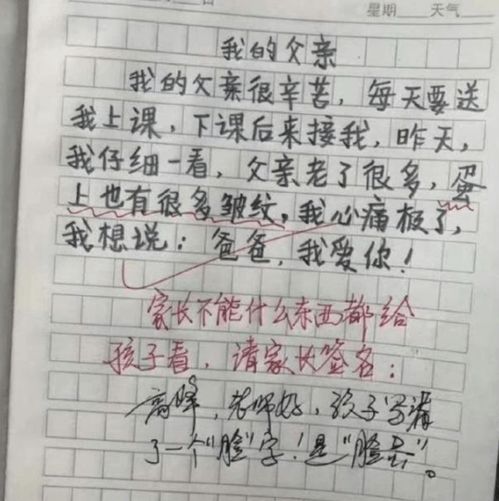 星期 天气
我的父亲
我的父亲很辛苦，每天要送
我上课，下课后来接我，昨天，
我仔细一看，父亲老了很多，蛋
上也有很多皱纹，我心痛极了，
我想说：爸爸，我爱你！
家长不能什么东西都给
孩子看，请家长签名：
高峰，老师好，孩子写漏
了一个“脸”字！是“脸蛋”。